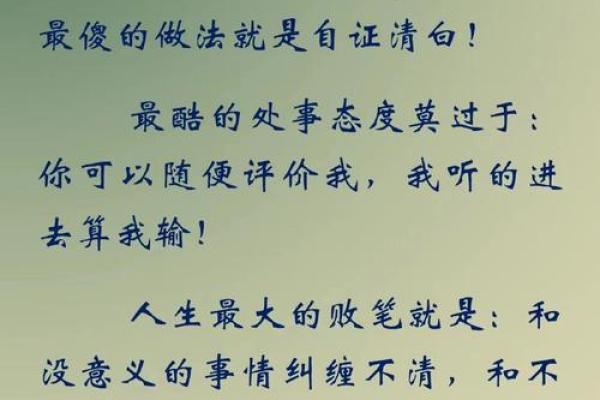 最傻的做法就是自证清白！
最酷的处事态度莫过于：
你可以随便评价我，我听的进
去算我输！
人生最大的败笔就是：和
没意义的事情纠缠不清，和不